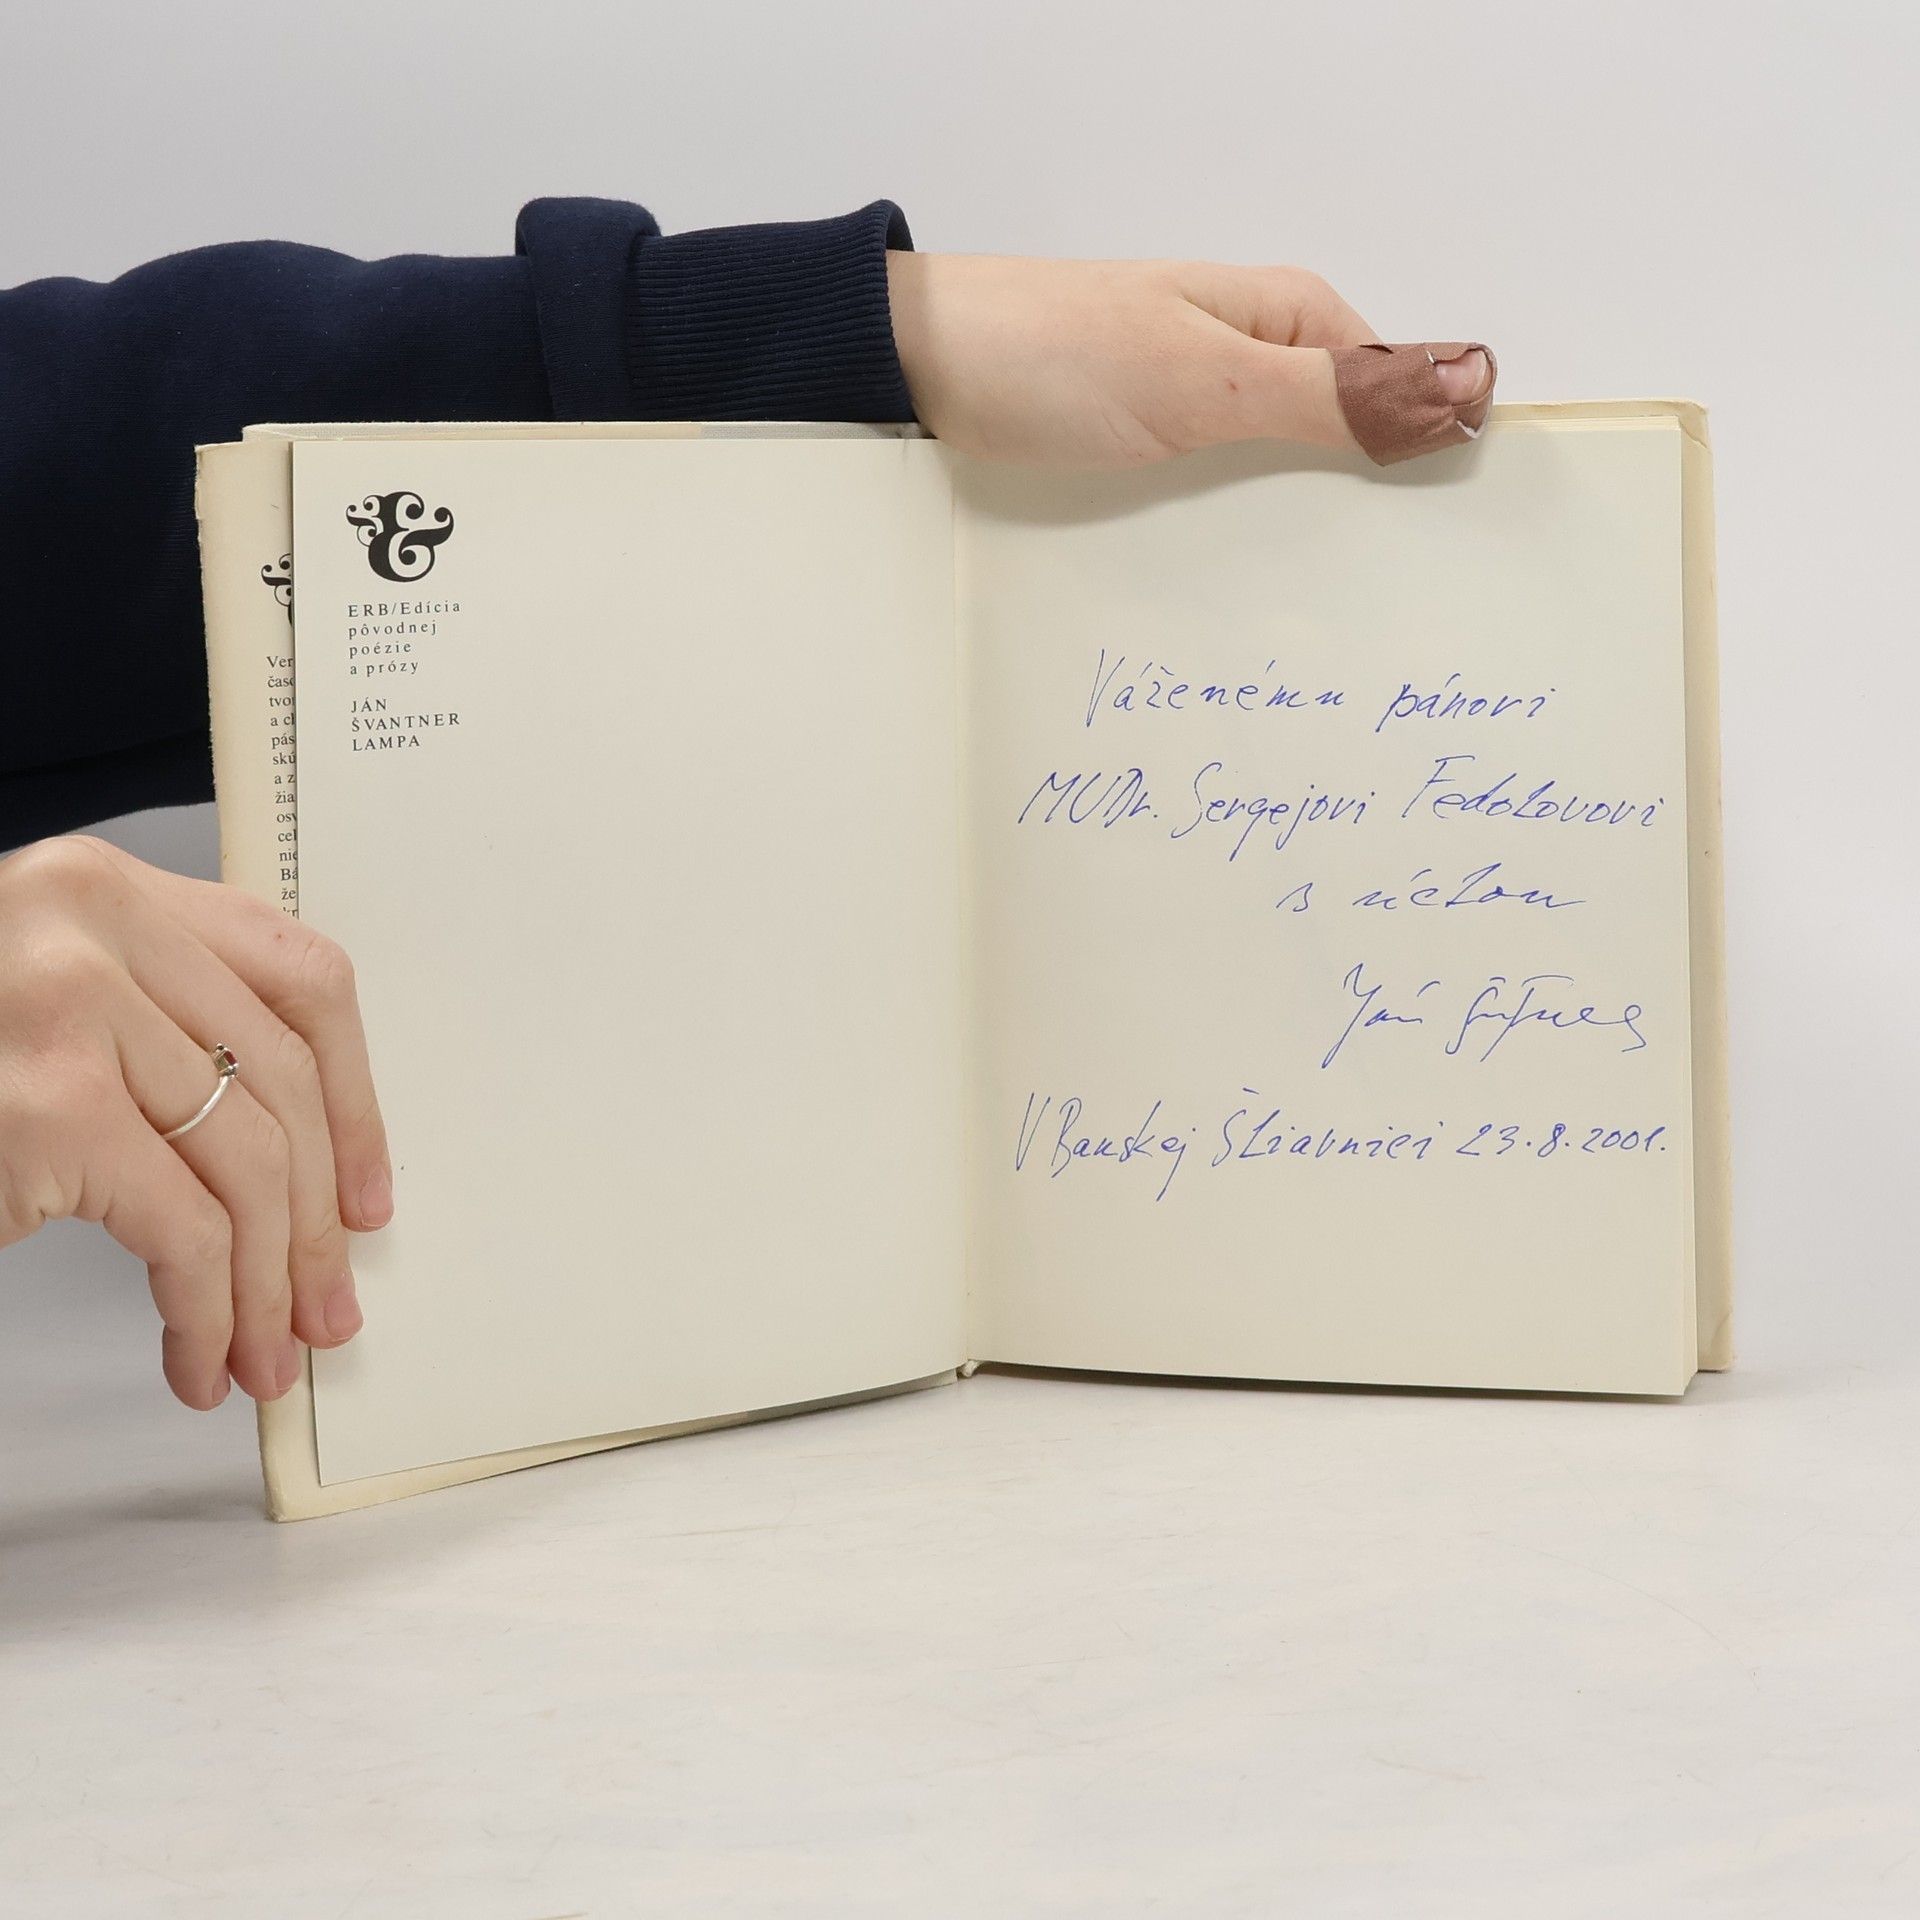 &
ERB/Edícia
pôvodnej
poézie
a prózy
JÁN
ŠVANTNER
LAMPA
Ver
časo
tvor
a ch
pás
skú
a z
žia
osv
cel
nie
Bá
že
Váženému pánovi
MUDr. Sergejovi Fedolovovi
s úctou
Ján
V Banskej Štiavnici 23.8.2001.